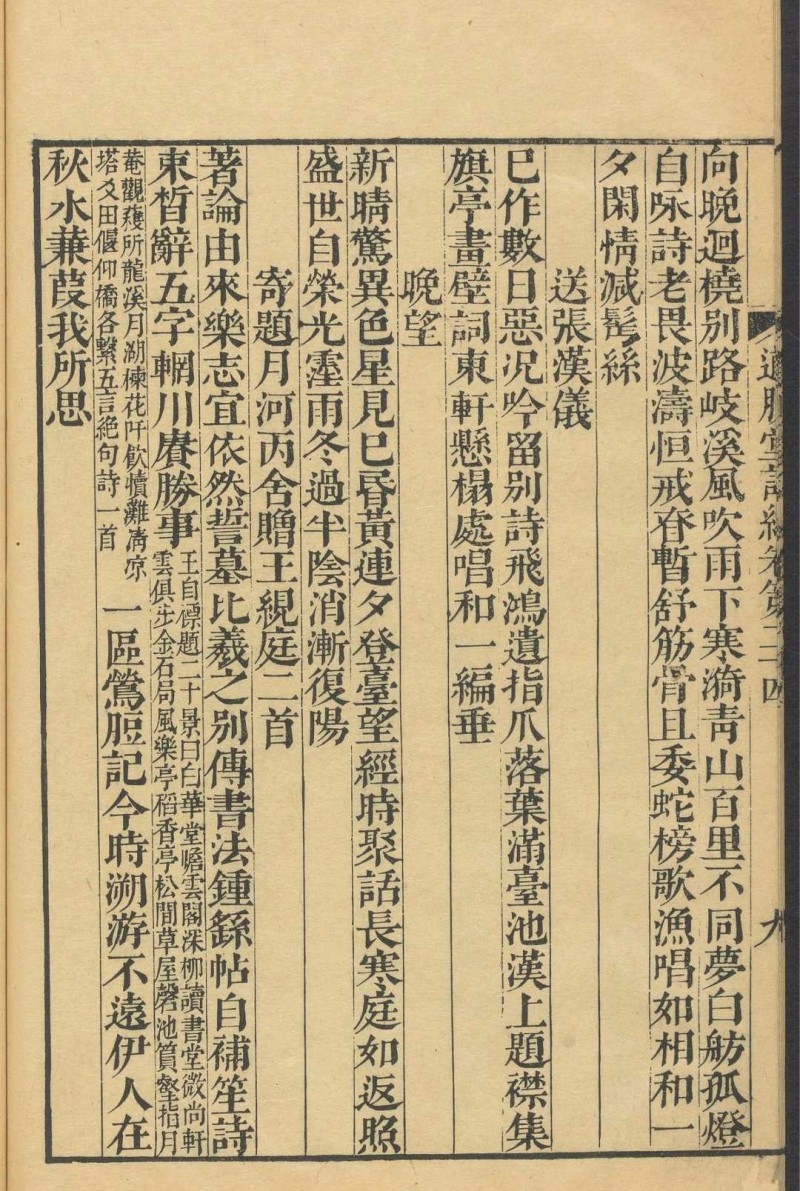 道腴堂詩編卷第二十四　九
向晚迴橈別路岐溪風吹雨下寒漪青山百里不同夢白舫孤燈
自咏詩老畏波濤恒戒眘暫舒筋骨且委蛇榜歌漁唱如相和一
夕閑情減髩絲
送張漢儀
已作數日惡況吟留别詩飛鴻遺指爪落葉滿臺池漢上題襟集
旗亭畫壁詞東軒懸榻處唱和一編垂
晚望
新晴驚異色星見巳昏黃連夕登臺望經時聚話長寒庭如返照
盛世自榮光霪雨冬過半陰消漸復陽
寄題月河丙舍贈王絸庭二首
著論由來樂志宜依然誓墓比羲之別傳書法鍾繇帖自補笙詩
束晳辭五字輞川賡勝事
王自標題二十景曰白華堂瞻雲閣深柳讀書堂微尚軒
雲俱步金石局風樂亭稻香亭松間草屋磬池篔壑指月
菴觀穫所龍溪月湖楝花吁飲犢灘清凉
塔爻田偃仰橋各繫五言絶句詩一首
一區鶯脰記今時溯游不遠伊人在
秋水蒹葭我所思